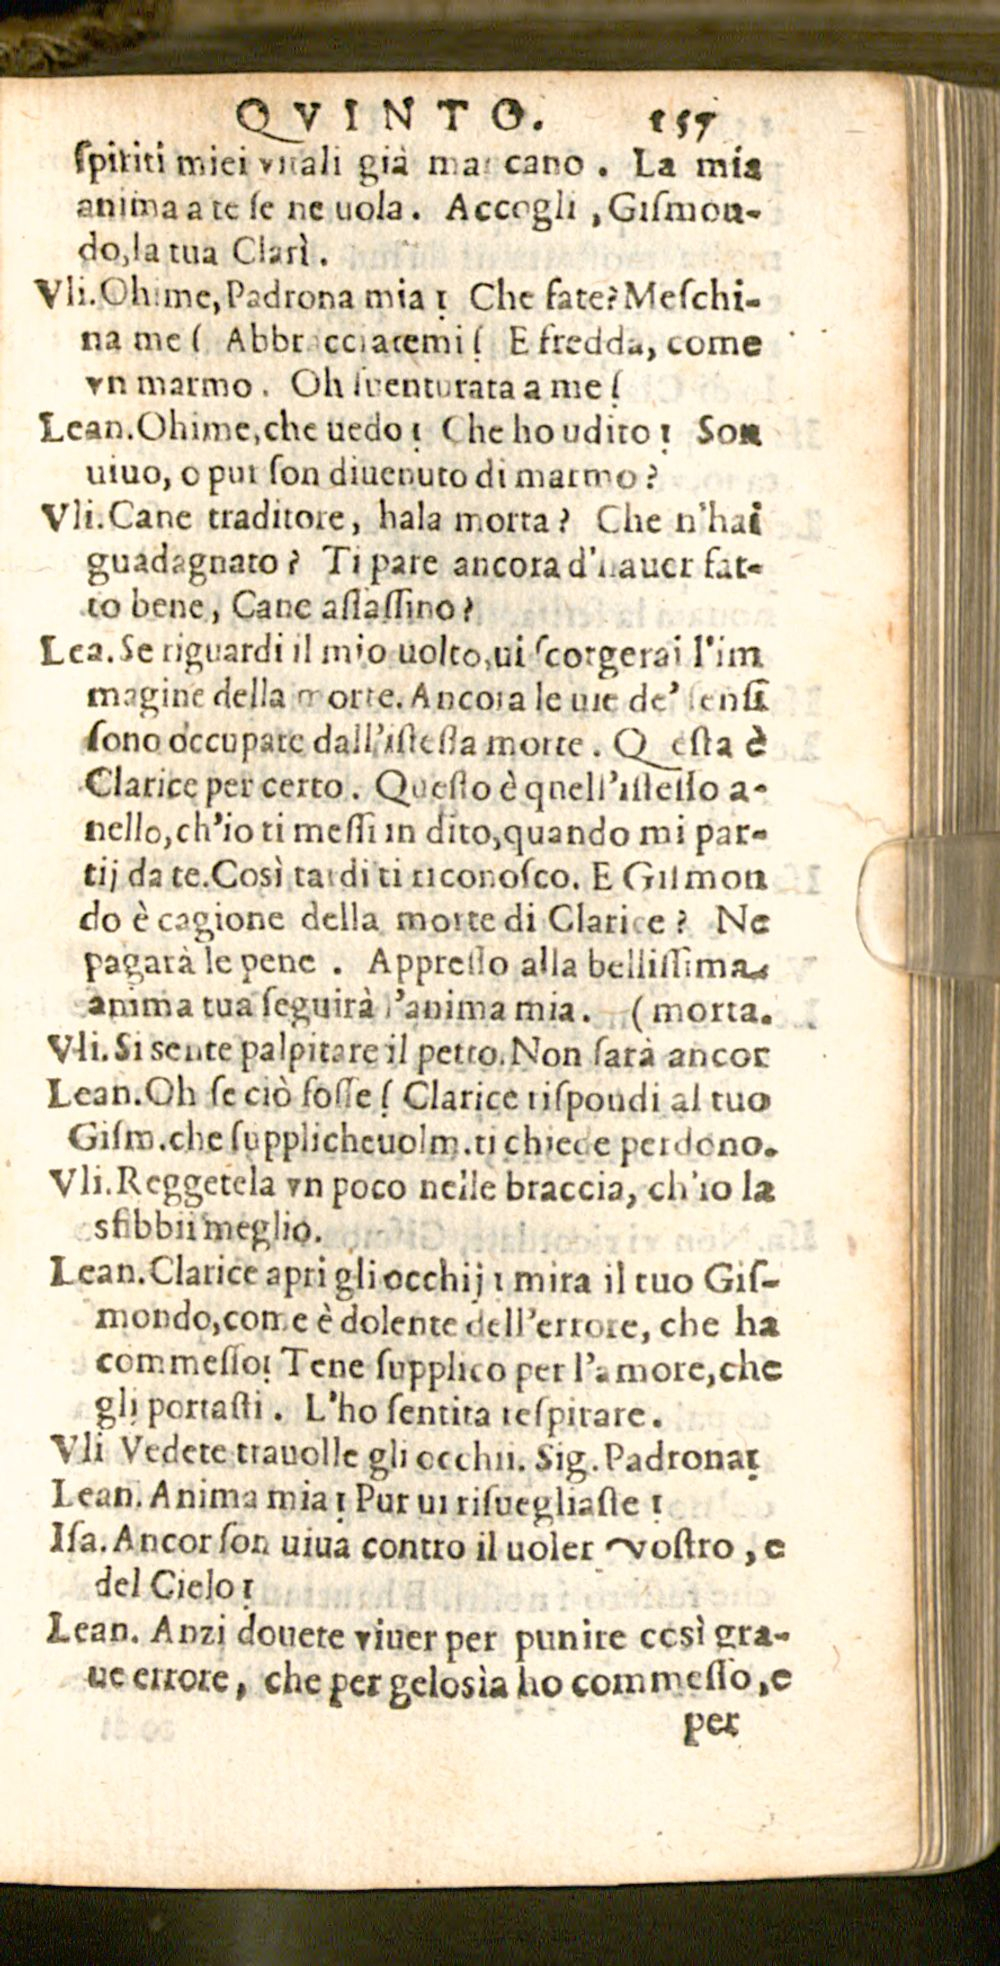 QVINTO. 157
ſpiriti miei vitali già mancano. La mia
anima a te ſe ne uola. Accogli, Giſmon-
do, la tua Clarì.
Vli. Ohime, Padrona mia! Che fate? Meſchi-
na me! Abbracciatemi! E fredda, come
vn marmo. Oh ſuenturata a me!
Lean. Ohime, che uedo! Che ho udito! Son
uiuo, o pur ſon diuenuto di marmo?
Vli. Cane traditore, hala morta? Che n'hai
guadagnato? Ti pare ancora d'hauer fat-
to bene, Cane aſſaſſino?
Lea. Se riguardi il mio uolto, ui ſcorgerai l'im
magine della morte. Ancora le uie de' ſenſi
ſono occupate dall'iſteſſa morte. Queſta è
Clarice per certo. Queſto è quell'iſteſſo a-
nello, ch'io ti meſſi in dito, quando mi par-
tij da te. Così tardi ti riconoſco. E Giſmon
do è cagione della morte di Clarice? Ne
pagarà le pene. Appreſſo alla belliſſima
anima tua ſeguirà l'anima mia. (morta.
Vli. Si sente palpitare il petto. Non ſarà ancor
Lean. Oh ſe ciò foſſe! Clarice riſpondi al tuo
Giſm. che ſupplicheuolm. ti chiede perdono.
Vli. Reggetela vn poco nelle braccia, ch'io la
sfibbii meglio.
Lean. Clarice apri gli occhij! mira il tuo Giſ-
mondo, come è dolente dell'errore, che ha
commeſſo! Tene ſupplico per l'amore, che
gli portaſti. L'ho ſentita reſpirare.
Vli Vedete trauolle gli occhii. Sig. Padrona!
Lean. Anima mia! Pur ui riſuegliaſte!
Iſa. Ancor ſon uiua contro il uoler voſtro, e
del Cielo!
Lean. Anzi douete viuer per punire così gra-
ue errore, che per gelosìa ho commeſſo, e
per